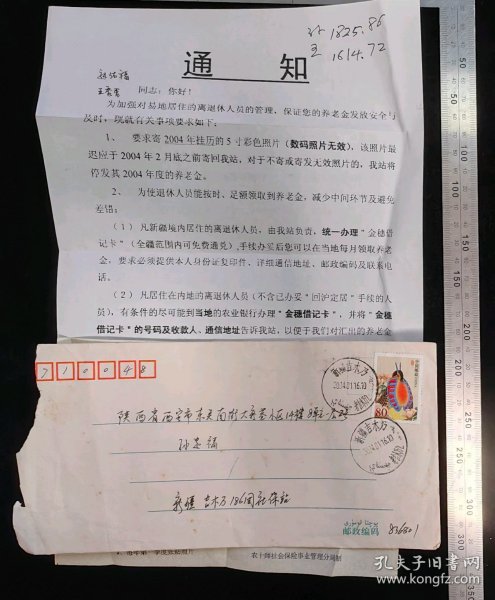 1825.86
王 1614.72
通 知
同志：你好！
为加强对易地居住的离退休人员的管理，保证您的养老金发放安全与
及时，现就有关事项要求如下：
1、 要求寄 2004 年挂历的 5 寸彩色照片（数码照片无效），该照片最
迟应于 2004 年 2 月底之前寄回我站，对于不寄或寄发无效照片的，我站将
停发其 2004 年度的养老金。
2、 为使退休人员能按时、足额领取到养老金，减少中间环节及避免
差错：
（1）凡新疆境内居住的离退休人员，由我站负责，统一办理“金穗借
记卡”（全疆范围内可免费通兑）手续办妥后您可以在当地每月领取养老
金，要求必须提供本人身份证复印件、详细通信地址、邮政编码及联系电
话。
（2）凡居住在内地的离退休人员（不含已办妥“回沪定居”手续的人
员），有条件的尽可能到当地的农业银行办理“金穗借记卡”，并将“金穗
借记卡”的号码及收款人、通信地址告诉我站，以便于我们对汇出的养老金
710048
中国邮政
80
新疆吉木乃
2004.01.16.10
新疆吉木乃
2004.01.16.10
陕西省西安市东关南街
新疆 吉木乃 186团社保站
邮政编码 836801
农十师社会保险事业管理分局制
孔夫子旧书网
www.kongfz.com